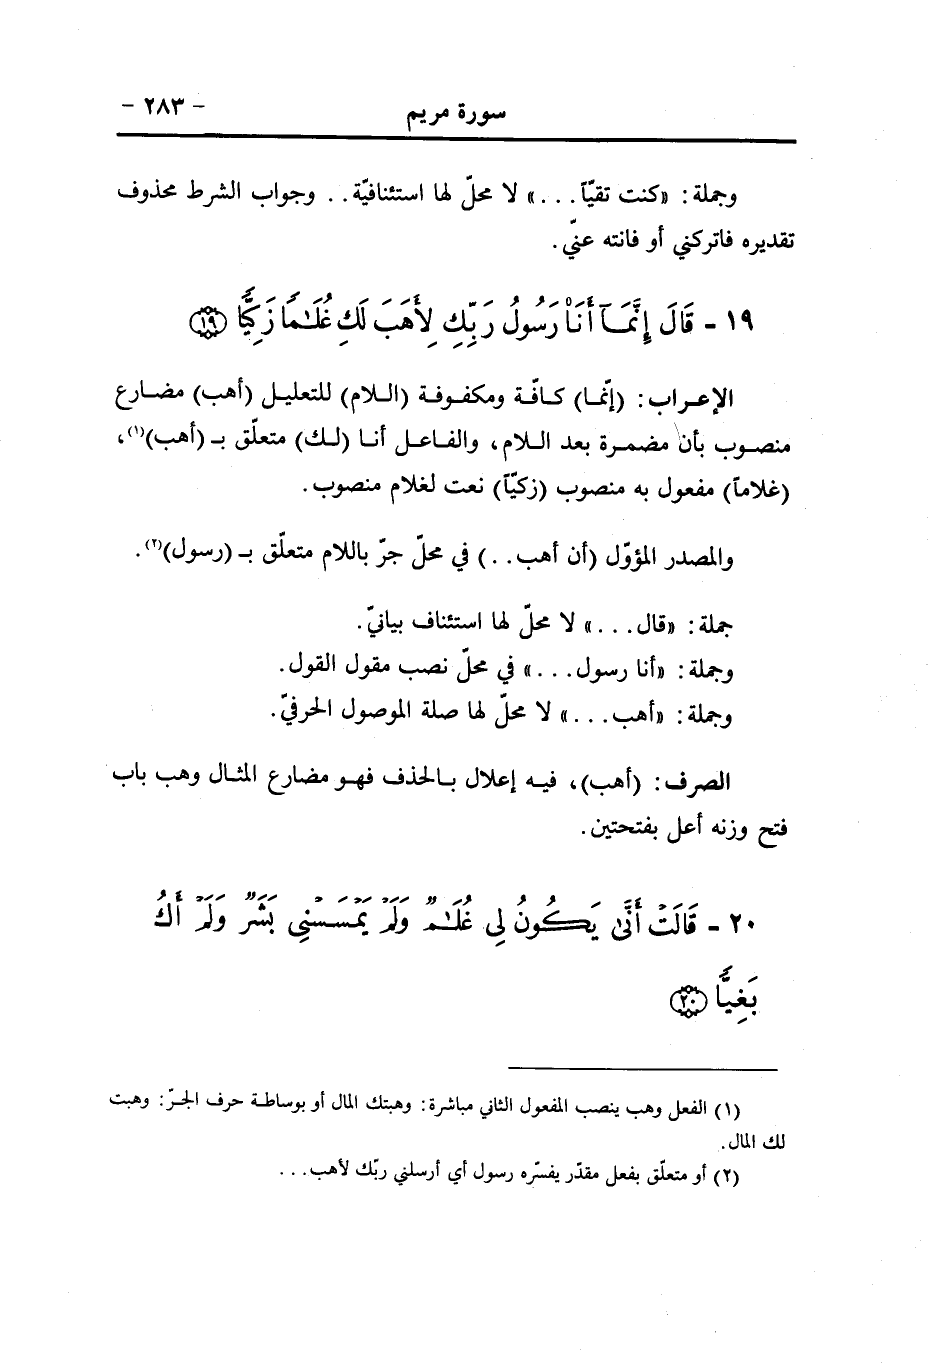 سورة مريم - ٢٨٣ -
وجملة: «كنت تقيّاً...» لا محلّ لها استئنافيّة.. وجواب الشرط محذوف
تقديره فاتركني أو فانته عنّي.
١٩ - قَالَ إِنَّمَآ أَنَا۠ رَسُولُ رَبِّكِ لِأَهَبَ لَكِ غُلَـٰمًا زَكِيًّا ١٩
الإعراب: (إنّما) كافّة ومكفوفة (اللام) للتعليل (أهب) مضارع
منصوب بأن مضمرة بعد اللام، والفاعل أنا (لك) متعلّق بـ (أهب)(١)،
(غلاماً) مفعول به منصوب (زكيّاً) نعت لغلام منصوب.
والمصدر المؤوّل (أن أهب..) في محلّ جرّ باللام متعلّق بـ (رسول)(٢).
جملة: «قال...» لا محلّ لها استئناف بيانيّ.
وجملة: «أنا رسول...» في محلّ نصب مقول القول.
وجملة: «أهب...» لا محلّ لها صلة الموصول الحرفيّ.
الصرف: (أهب)، فيه إعلال بالحذف فهو مضارع المثال وهب باب
فتح وزنه أعل بفتحتين.
٢٠ - قَالَتْ أَنَّىٰ يَكُونُ لِى غُلَـٰمٌ وَلَمْ يَمْسَسْنِى بَشَرٌ وَلَمْ أَكُ
بَغِيًّا ٢٠
(١) الفعل وهب ينصب المفعول الثاني مباشرة: وهبتك المال أو بوساطة حرف الجرّ: وهبت
لك المال.
(٢) أو متعلّق بفعل مقدّر يفسّره رسول أي أرسلني ربّك لأهب...